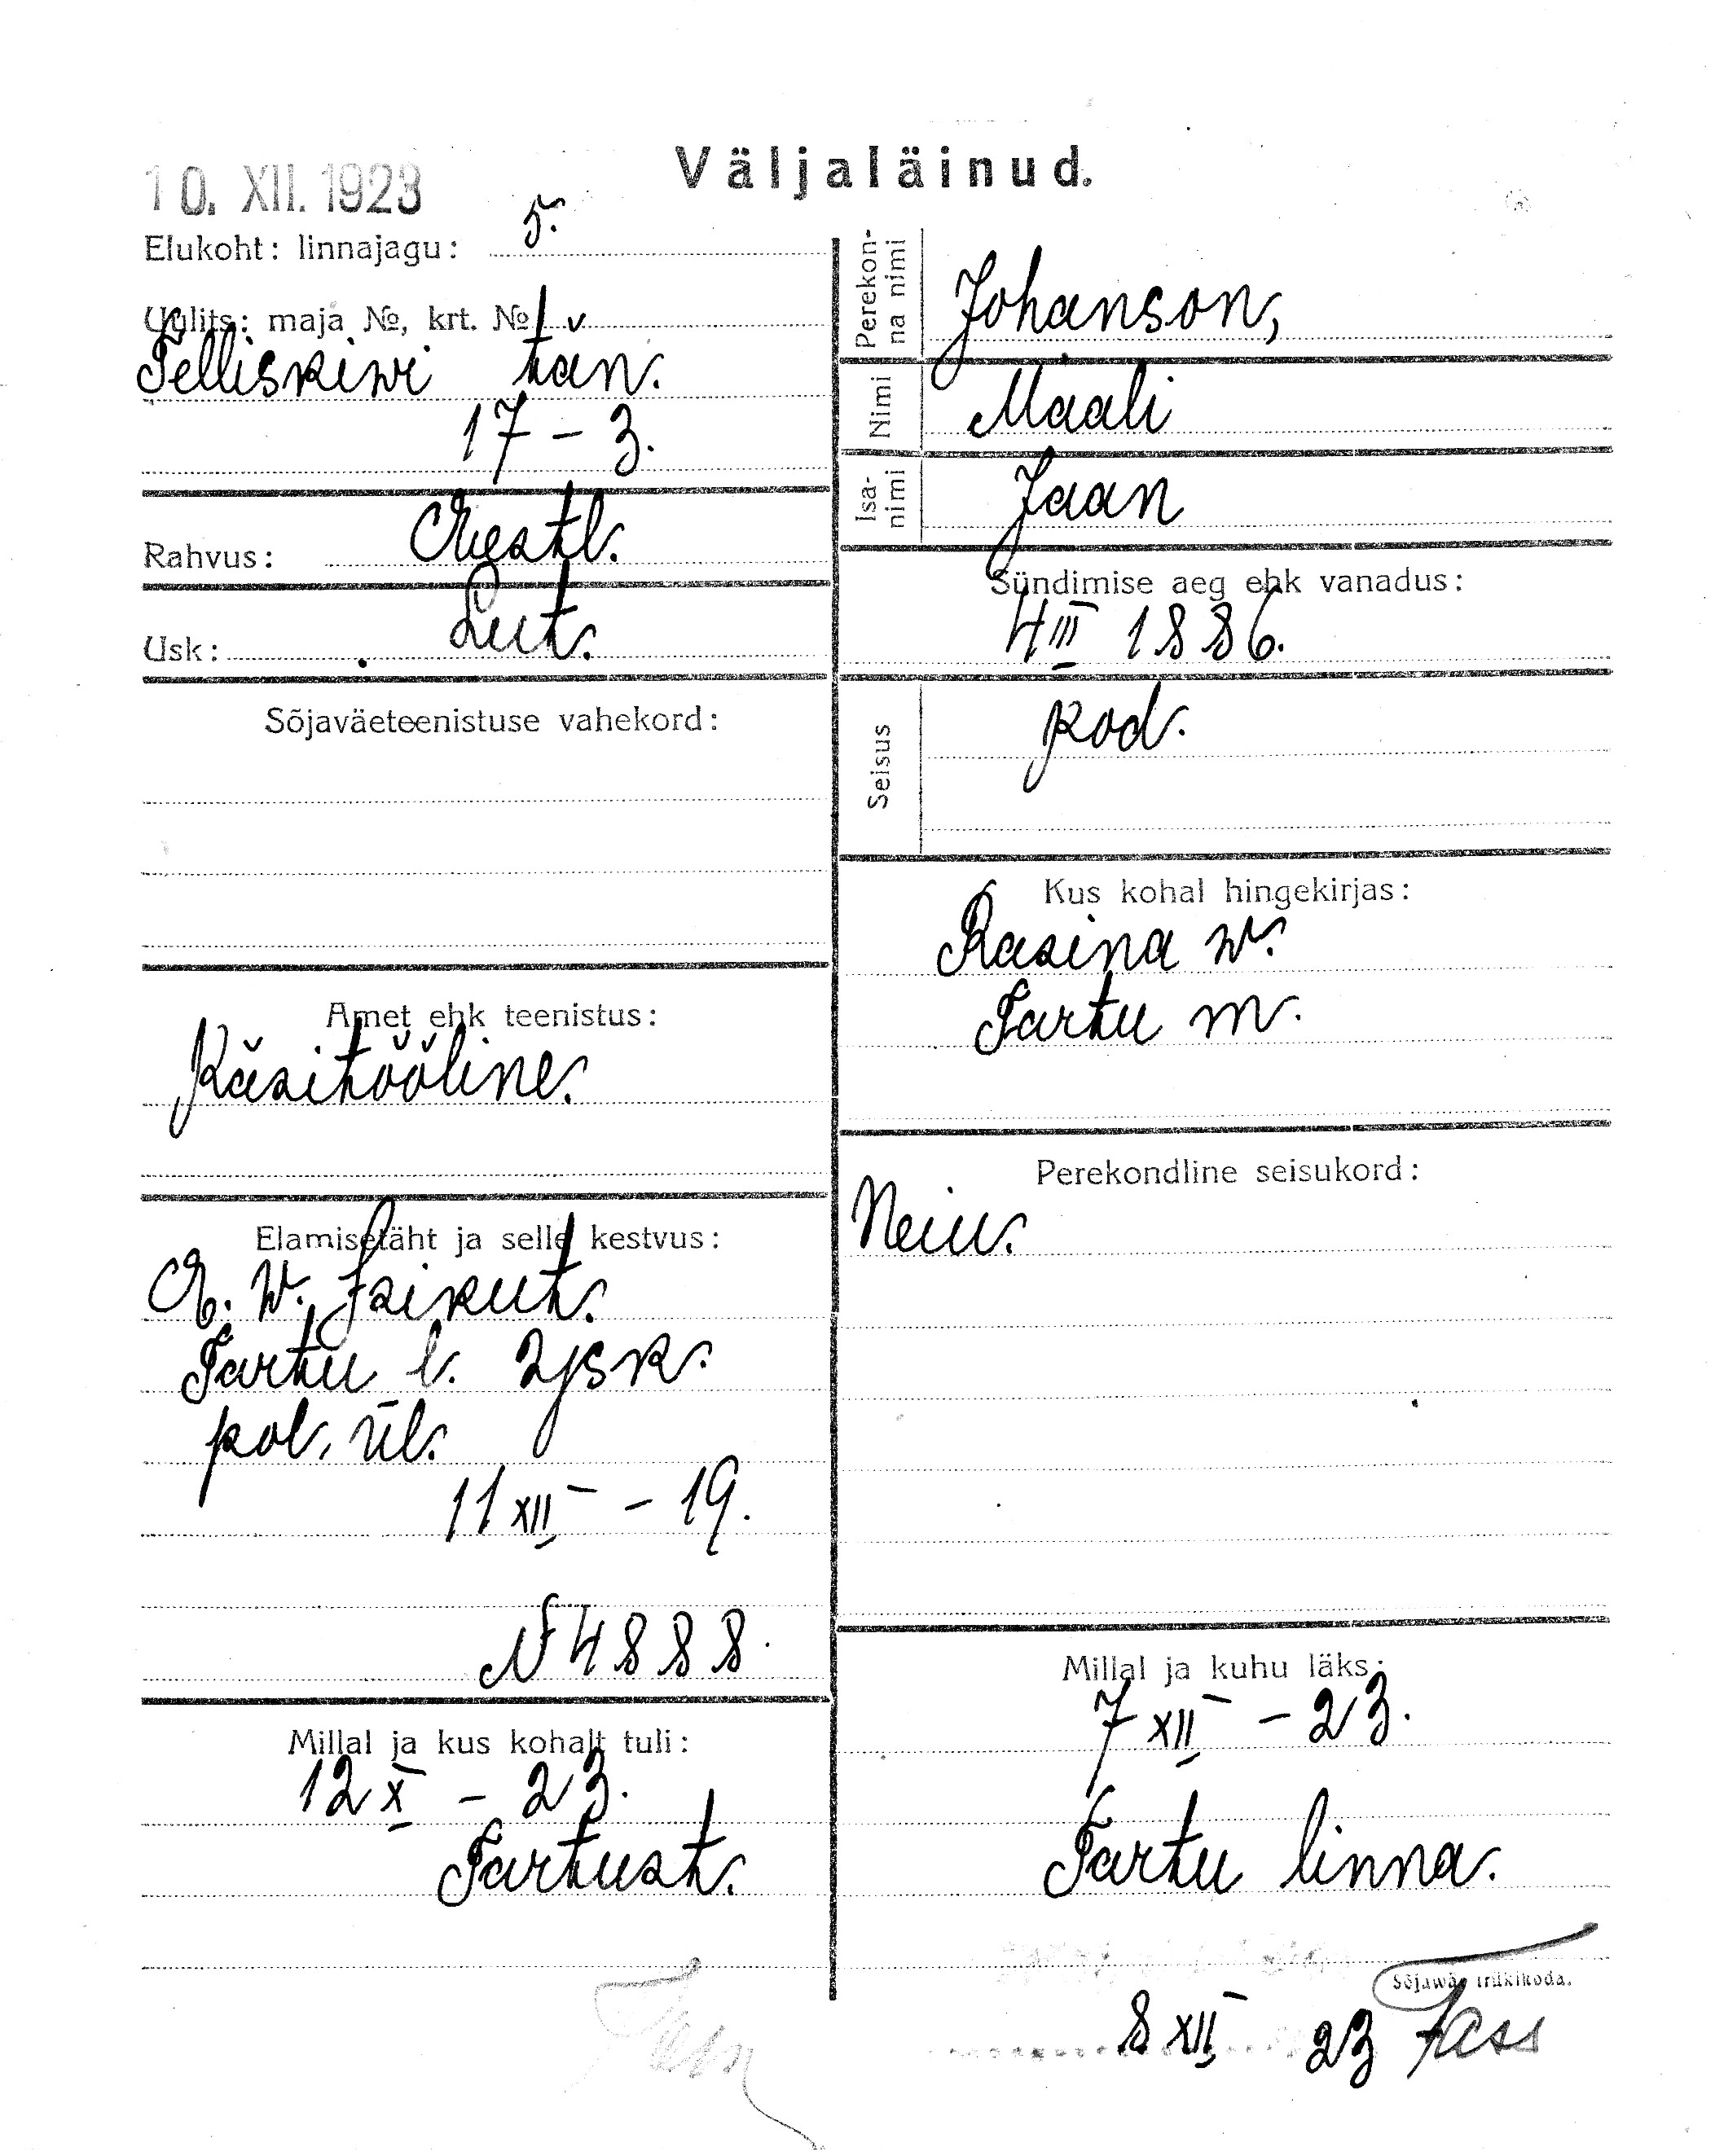 Väljaläinud.
10. XII. 1923
Elukoht: linnajagu: 5.
Uulits: maja №, krt. №
Telliskiwi tän.
17 – 3.
Rahvus: Eestl.
Usk: Lut.
Sõjaväeteenistuse vahekord:
Amet ehk teenistus:
Käsitööline.
Elamisetäht ja selle kestvus:
E. W. Isikut.
Tartu l. 2 jsk.
pol. ül.
11 XII – 19.
N 4888.
Millal ja kus kohalt tuli:
12 X – 23.
Tartust.
Perekon-
na nimi
Johanson,
Nimi Maali
Isa-
nimi
Jaan
Sündimise aeg ehk vanadus:
4 III 1886.
Seisus kod.
Kus kohal hingekirjas:
Rasina w.
Tartu m.
Perekondline seisukord:
Neiu.
Millal ja kuhu läks:
7 XII – 23.
Tartu linna.
Sõjawäe trükikoda.
8 XII 23